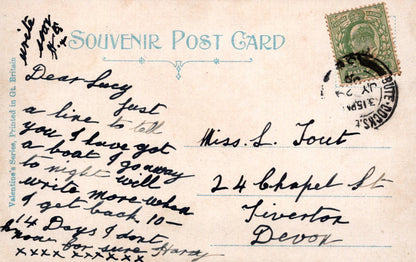 write
soon
SOUVENIR POST CARD
Valentine's Series, Printed in Gt. Britain
Dear Lucy
Just
a line to tell
you I have got
a boat I go away
to night well
write more when
I get back 10-
14 Days I dont
know for sure Harry
xxxx xxxxxx
Miss. L. Tout
24 Chapel St
Tiverton
Devon
BUTE-DOCKS
3.15PM
JY 2